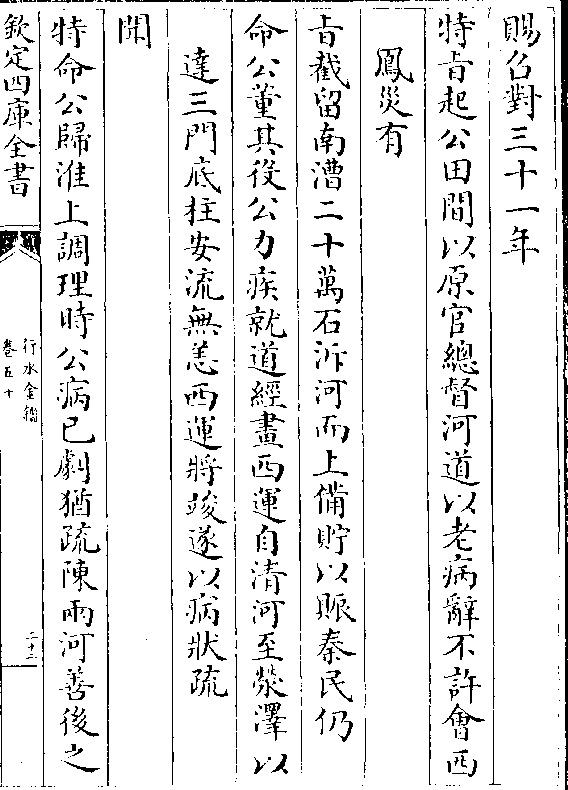 賜召對三十一年
特㫖起公田間以原官總督河道以老病辭不許會西
鳳災有
㫖截留南漕二十萬石泝河而上備貯以賑秦民仍
命公董其役公力疾就道經畫西運自清河至滎澤以
達三門底柱安流無恙西運將竣遂以病狀疏
聞
特命公歸淮上調理時公病已劇猶疏陳兩河善後之
欽定四庫全書
行水金鑑
卷五十
二十二